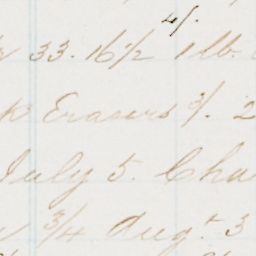 4/.
33. 16 1/2 1 lb.
Erasers 3/. 2
July 5. Cha
3/4 Augt. 3